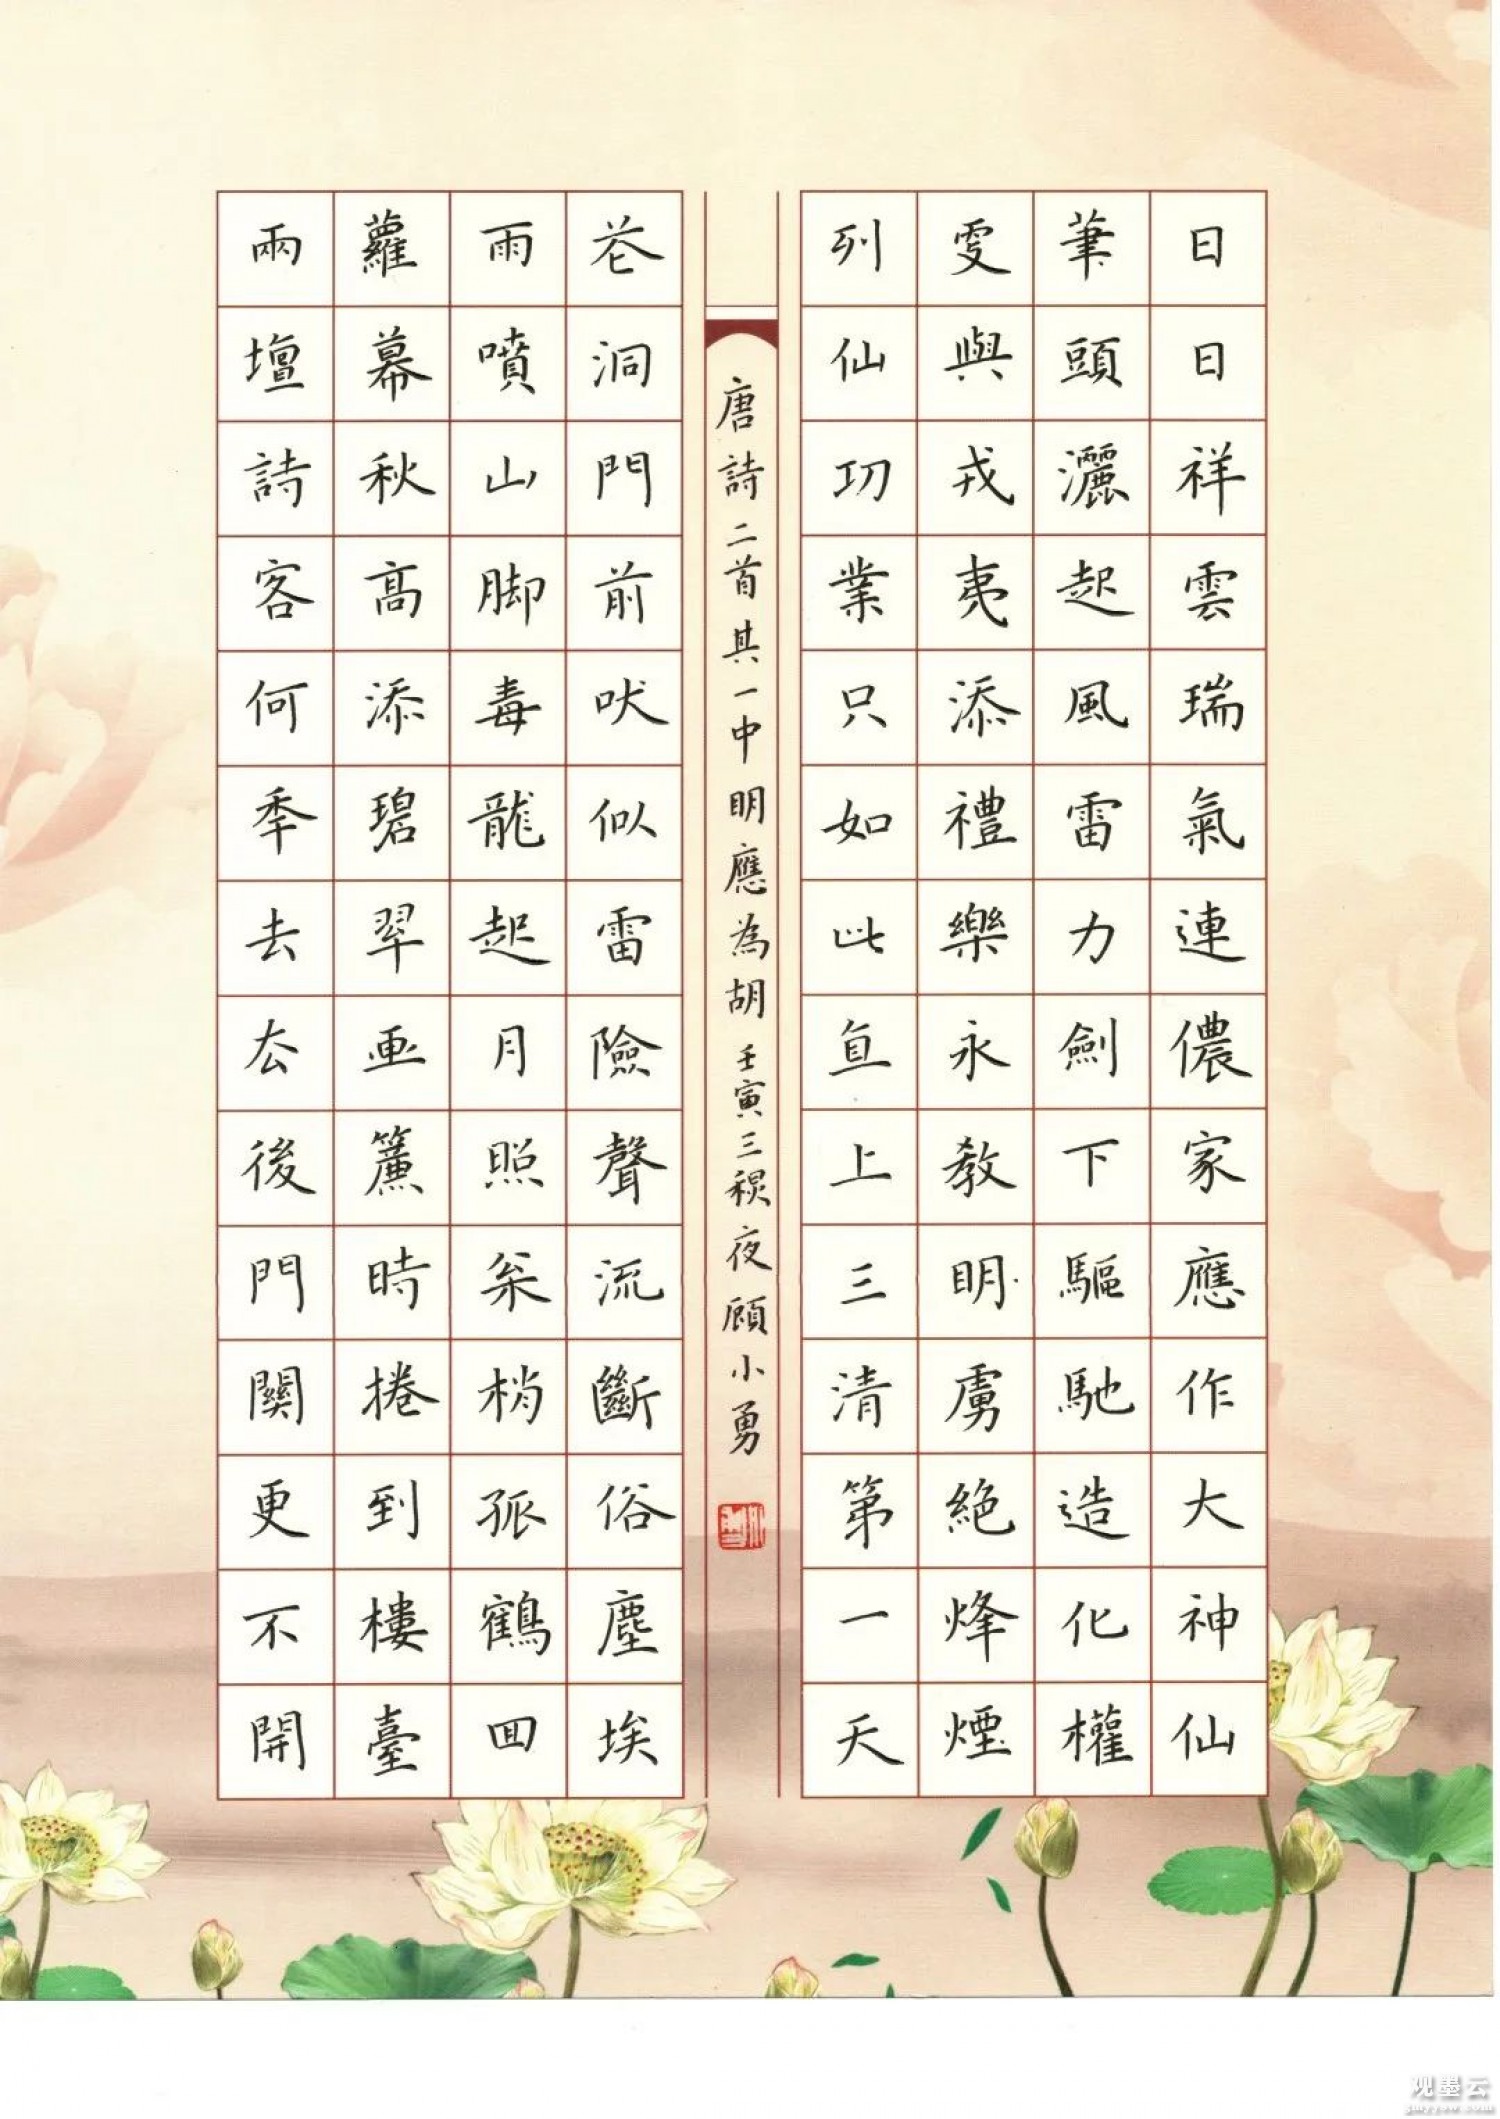 日日祥雲瑞氣連儂家應作大神仙
筆頭灑起風雷力劍下驅馳造化權
更與戎夷添禮樂永教明虜絕烽煙
列仙功業只如此直上三清第一天
唐詩二首其一中明應為胡壬寅三稘夜顧小勇
花洞門前吠似雷險聲流斷俗塵埃
雨噴山脚毒龍起月照松梢孤鶴回
蘿幕秋高添碧翠畫簾時捲到樓臺
兩壇詩客何年去去後門關更不開
观墨云
gmyyow.com